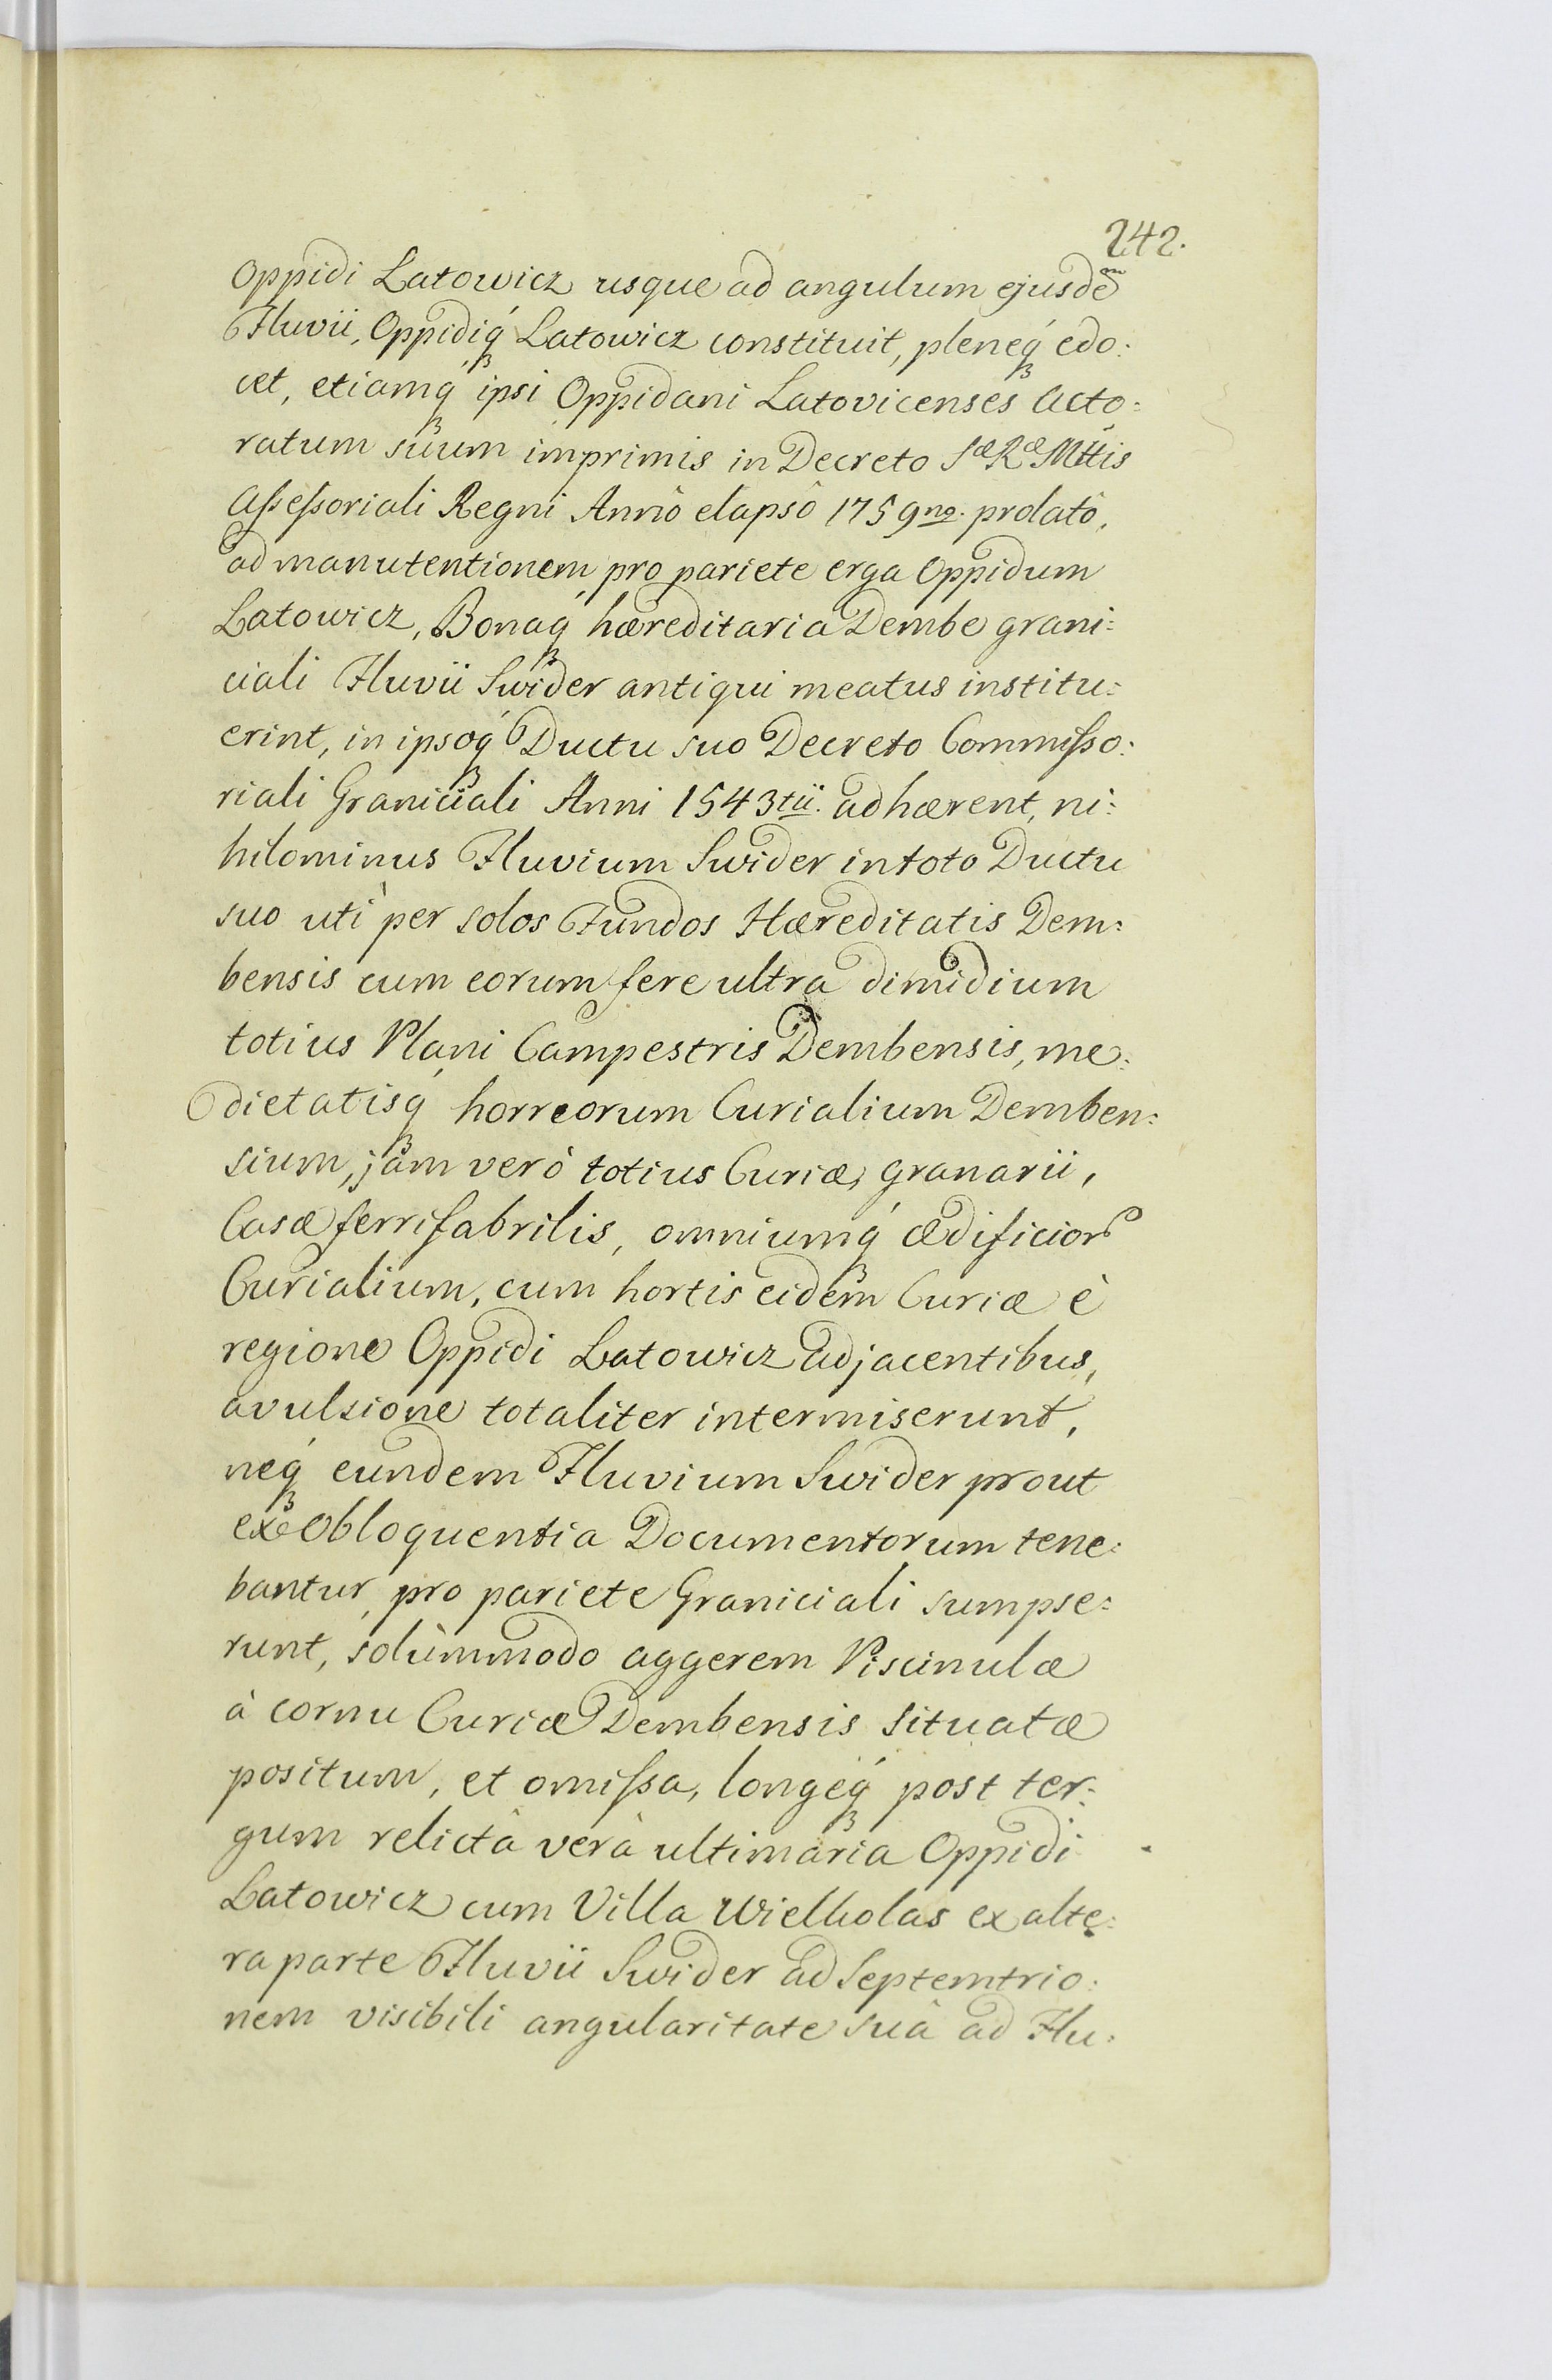 242.
Oppidi Latowicz usque ad angulum ejusdẽm
Fluvii, Oppidiq́ꝫ Latowicz constituit, pleneq́ꝫ edo:
cet, etiamq́ꝫ ipsi Oppidani Latovicenses Acto:
ratum suum imprimis in Decreto Sæ Ræ Mttis
Aſseſsoriali Regni Annô elapsô 1759no. prolatô,
ad manutentionem pro pariete erga Oppidum
Latowicz, Bonaq́ꝫ hæreditaria Dembe grani:
ciali Fluvii Swider antiqui meatus institu:
erint, in ipsoq́ꝫ Ductu suo Decreto Commiſso:
riali Graniciali Anni 1543tii. adhærent, ni:
hilominus Fluvium Swider in toto Ductu
suo uti per solos Fundos Hæreditatis Dem:
bensis cum eorum fere ultra dimidium
totius Plani Campestris Dembensis, me:
dietatisq́ꝫ horreorum Curialium Demben:
sium, jam verò totius Curiæ, granarii,
Casæ ferrifabrilis, omniumq́ꝫ ædificior
Curialium, cum hortis eidem̃ Curiæ è
regione Oppidi Latowicz adjacentibus,
avulsione totaliter intermiserunt,
neq́ꝫ eundem Fluvium Swider prout
ex Obloquentia Documentorum tene:
bantur, pro pariete Graniciali sumpse:
runt, solùmmodo aggerem Piscinulæ
à cornu Curiæ Dembensis situatæ
positum, et omiſsa, longeq́ꝫ post ter:
gum relictâ verâ ultimaria Oppidi
Latowicz cum Villa Wielholas ex alte:
ra parte Fluvii Swider ad Septemtrio:
nem visibili angularitate suâ ad Flu: